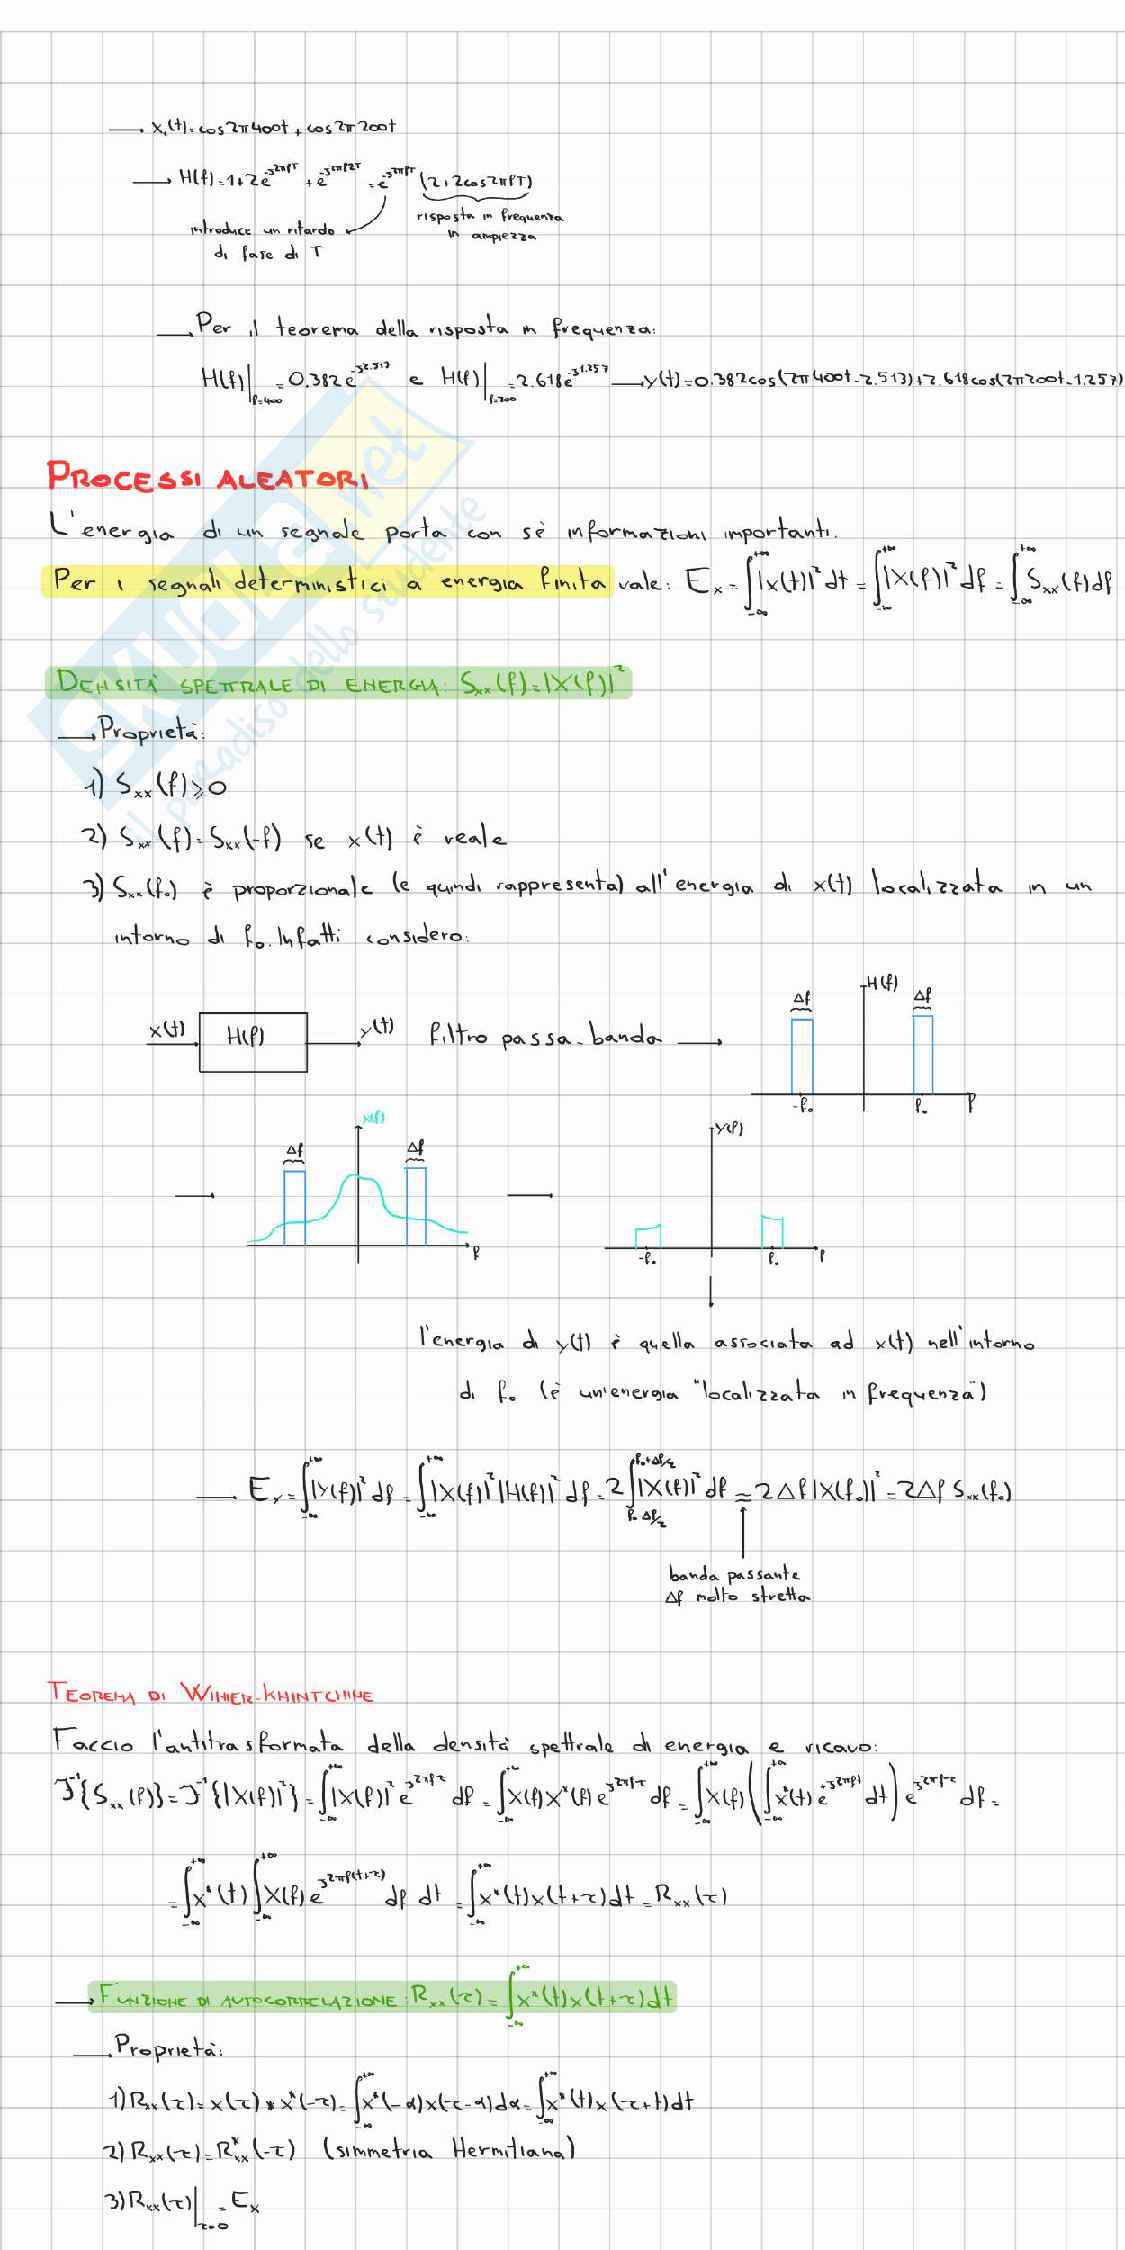 → x₁(t)=cos2π400t+cos2π200t
→ H(f)=1+2e^{-j2πfT}+e^{-j2πf2T}=e^{-j2πfT}(2+2cos2πfT)
introduce un ritardo di fase di T
risposta in frequenza in ampiezza
→ Per il teorema della risposta in frequenza:
H(f)|_{f=400}=0.382e^{-j2.513} e H(f)|_{f=200}=2.618e^{-j1.257} → y(t)=0.382cos(2π400t-2.513)+2.618cos(2π200t-1.257)
PROCESSI ALEATORI
L'energia di un segnale porta con sè informazioni importanti.
Per i segnali deterministici a energia finita vale: E_x=∫_{-∞}^{+∞}|x(t)|²dt=∫_{-∞}^{+∞}|X(f)|²df=∫_{-∞}^{+∞}S_{xx}(f)df
DENSITÀ SPETTRALE DI ENERGIA: S_{xx}(f)=|X(f)|²
→ Proprietà:
1) S_{xx}(f)≥0
2) S_{xx}(f)=S_{xx}(-f) se x(t) è reale
3) S_{xx}(f₀) è proporzionale (e quindi rappresenta) all'energia di x(t) localizzata in un
intorno di f₀. Infatti considero:
x(t) H(f) y(t) filtro passa-banda →
H(f)
Δf Δf
-f₀ f₀ f
X(f)
Δf Δf
f
Y(f)
-f₀ f₀ f
l'energia di y(t) è quella associata ad x(t) nell'intorno
di f₀ (è un'energia "localizzata in frequenza")
→ E_y=∫_{-∞}^{+∞}|Y(f)|²df=∫_{-∞}^{+∞}|X(f)|²|H(f)|²df=2∫_{f₀-Δf/2}^{f₀+Δf/2}|X(f)|²df≃2Δf|X(f₀)|²=2Δf S_{xx}(f₀)
banda passante
Δf molto stretta
TEOREMA DI WINIER-KHINTCHINE
Faccio l'antitrasformata della densità spettrale di energia e ricavo:
ℱ⁻¹{S_{xx}(f)}=ℱ⁻¹{|X(f)|²}=∫_{-∞}^{+∞}|X(f)|²e^{j2πfτ}df=∫_{-∞}^{+∞}X(f)X*(f)e^{j2πfτ}df=∫_{-∞}^{+∞}X(f)(∫_{-∞}^{+∞}x*(t)e^{+j2πft}dt)e^{j2πfτ}df=
=∫_{-∞}^{+∞}x*(t)∫_{-∞}^{+∞}X(f)e^{j2πf(t+τ)}df dt=∫_{-∞}^{+∞}x*(t)x(t+τ)dt=R_{xx}(τ)
→ FUNZIONE DI AUTOCORRELAZIONE: R_{xx}(τ)=∫_{-∞}^{+∞}x*(t)x(t+τ)dt
→ Proprietà:
1) R_{xx}(τ)=x(τ)*x*(-τ)=∫_{-∞}^{+∞}x*(-α)x(τ-α)dα=∫_{-∞}^{+∞}x*(t)x(τ+t)dt
2) R_{xx}(τ)=R*_{xx}(-τ) (simmetria Hermitiana)
3) R_{xx}(τ)|_{τ=0}=E_x
skuola.net
il paradiso dello studente